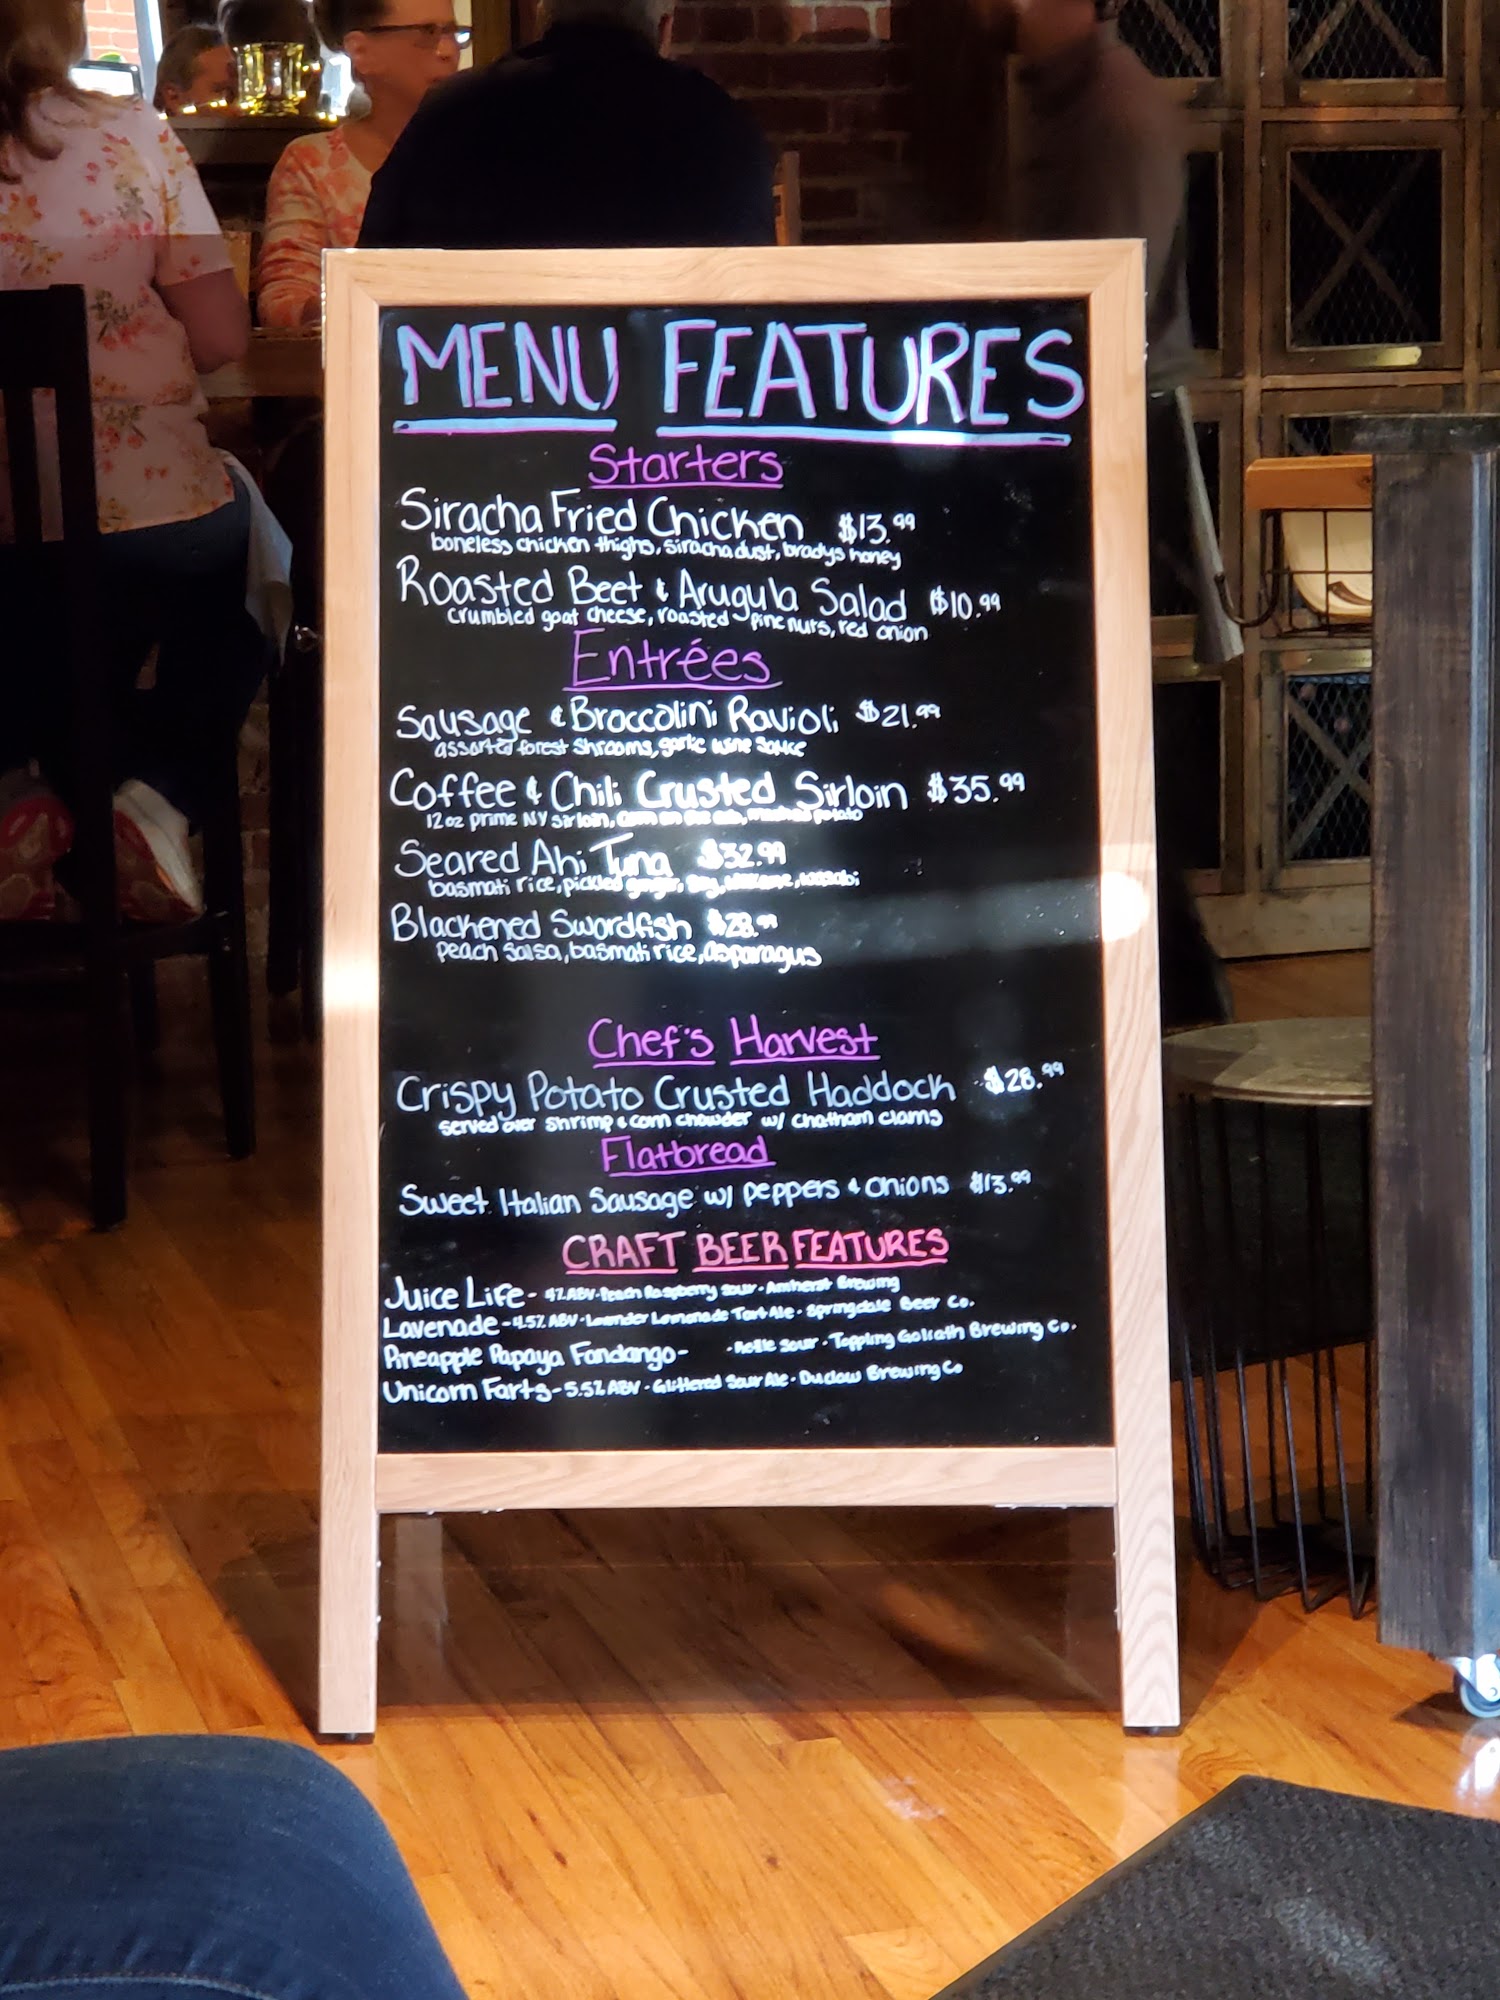 MENU FEATURES
Starters
Siracha Fried Chicken $13.99
boneless chicken thighs, siracha dust, bradys honey
Roasted Beet & Arugula Salad $10.99
crumbled goat cheese, roasted pine nuts, red onion
Entrées
Sausage & Broccolini Ravioli $21.99
assorted forest shrooms, garlic wine sauce
Coffee & Chili Crusted Sirloin $35.99
12oz prime NY sirloin, corn on the cob, mashed potato
Seared Ahi Tuna $32.99
basmati rice, pickled ginger, wasabi
Blackened Swordfish $28.99
peach salsa, basmati rice, asparagus
Chef's Harvest
Crispy Potato Crusted Haddock $28.99
served over shrimp & corn chowder w/ chatham clams
Flatbread
Sweet Italian Sausage w/ peppers & onions $13.99
CRAFT BEER FEATURES
Juice Life - 4% ABV - Peach Raspberry Sour - Amherst Brewing
Lavenade - 4.5% ABV - Lavender Lemonade Tart Ale - Springdale Beer Co.
Pineapple Papaya Fandango - - Sour - Toppling Goliath Brewing Co.
Unicorn Farts - 5.5% ABV - Glittered Sour Ale - Duclaw Brewing Co